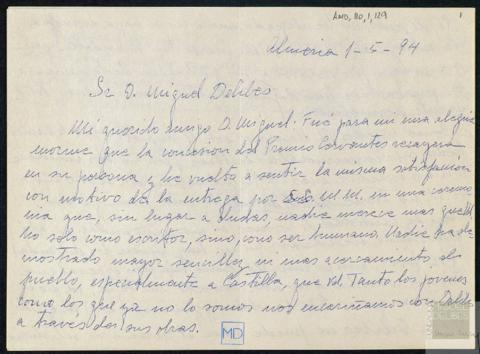 AMD, 80, 1, 129
1
Almeria 1-5-94
Sr. D. Miguel Delibes
Mi querido amigo D. Miguel: Fué para mi una alegria
enorme que la concesión del Premio Cervantes recayera
en su persona, he vuelto a sentir la misma satisfacción
con motivo de la entrega por SS. MM. en una ceremo
nia que, sin lugar a dudas, nadie merece mas que Vd.
No solo como escritor, sino, como ser humano. Nadie ha de
mostrado mayor sencillez, ni mas acercamiento al
pueblo, especialmente a Castilla, que Vd. Tanto los jovenes
como los que ya no lo somos nos encariñamos con
a través de sus obras.
MD